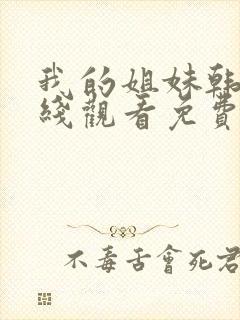 我的姐妹韩
綫觀看免費
不毒舌會死君